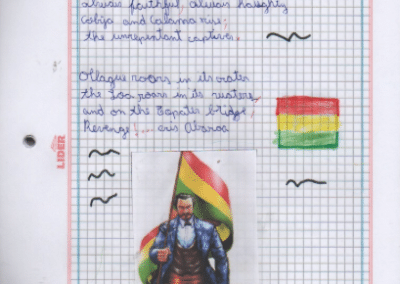 always faithful, always haughty
Cobija and Calama rise;
the unrepentant captives.
Ollague roars in its crater
the Loa roars in its waters,
and on the Topater bridge,
Revenge!... cries Abaroa
LIDER